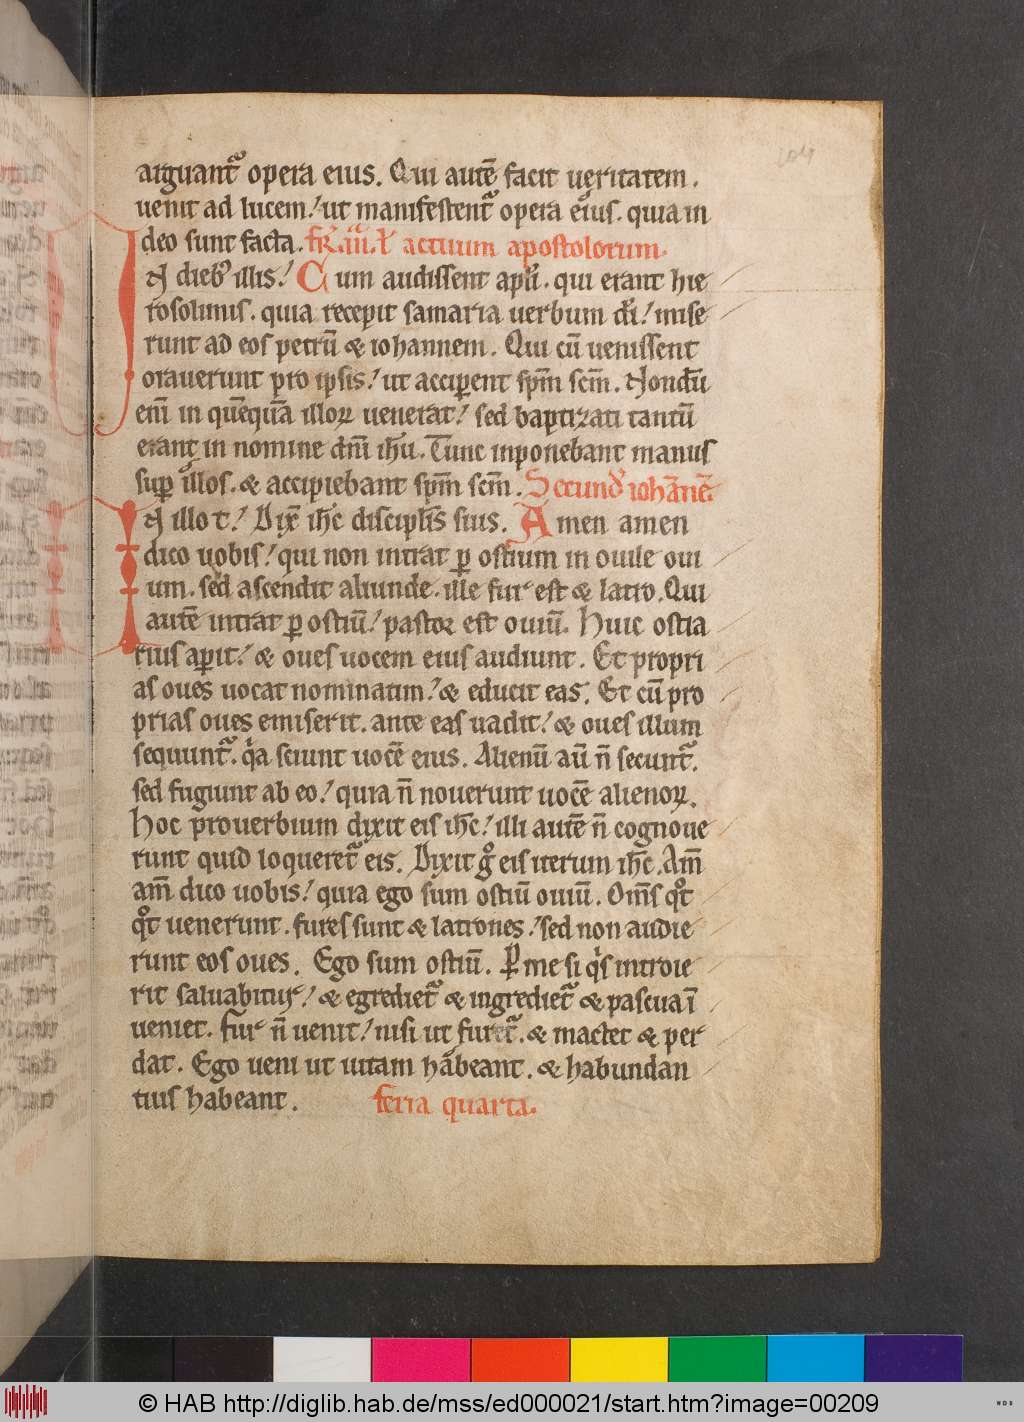 arguant᷑ opera eius. Qui autē facit ueritatem.
uenit ad lucem! ut manifestent᷑ opera eius. quia in
deo sunt facta. fr̄. iii. ł actuum apostolorum.
IN dieb; illis! Cum audissent apłi. qui erant hie
rosolimis. quia recepit samaria uerbum dī! mise
runt ad eos petrū & iohannem. Qui cū uenissent
orauerunt pro ipsis! ut acciperent spm̄ scm̄. Nondū
enī in quēquā illoꝝ uenerat! sed baptizati tantū
erant in nomine dnī ihū. Tunc inponebant manus
suꝑ illos. & accipiebant spm̄ scm̄. Secund̄ iohānē.
IN illo t̄! Dix̄ ihc̄ discipłis suis. Amen amen
dico uobis! qui non intrat ꝑ ostium in ouile oui
um. sed ascendit aliunde. ille fur est & latro. Qui
autē intrat ꝑ ostiū! pastor est ouiū. Huic ostia
rius aꝑit! & oues uocem eius audiunt. Et propri
as oues uocat nominatim! & educit eas. Et cū pro
prias oues emiserit. ante eas uadit! & oues illum
sequunt᷑. qͥa sciunt uocē eius. Alienū aū n̄ secunt᷑.
sed fugiunt ab eo! quia n̄ nouerunt uocē alienoꝝ.
Hoc prouerbium dixit eis ihc̄! illi autē n̄ cognoue
runt quid loqueret᷑ eis. Dixit gͦ eis iterum ihc̄. Am̄
am̄ dico uobis! quia ego sum ostiū ouiū. Om̄s qͦt
qͦt uenerunt. fures sunt & latrones! sed non audie
runt eos oues. Ego sum ostiū. Ꝑ me si qͥs introie
rit saluabitur! & egrediet᷑ & ingrediet᷑ & pascua ī
ueniet. Fur n̄ uenit! nisi ut furet᷑. & mactet & per
dat. Ego ueni ut uitam habeant. & habundan
tius habeant. feria quarta.
© HAB http://diglib.hab.de/mss/ed000021/start.htm?image=00209